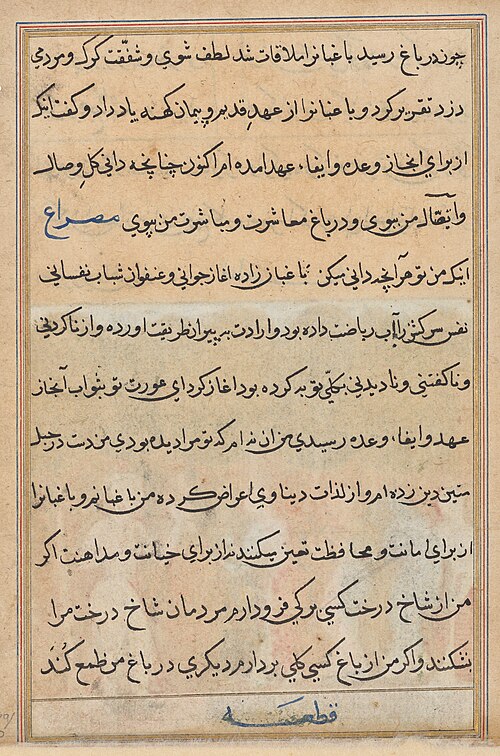 چون در باغ رسید باغبانرا ملاقات شد لطف شوی و شفقت کرک و مردمی
دزد تقریر کرد و باغبانرا از عهد قدیم و پیمان کهنه یاد داد و کفت اینک
از برای انجاز وعده و ایفاء عهد امده ام اکنون چنانچه دانی کل وصال
من ببوی و در باغ معاشرت و مباشرت من بپوی مصراع
اینک من تو هر آنچه دانی میکن باغبان زاده اغاز جوانی و عنفوان شباب نفسانی
نفس سرکش را آب ریاضت داده بود و ارادت بر پیران طریقت اورده و از ناکردنی
و ناکفتنی و نادیدنی بکلی توبه کرده بود اغاز کرد ای عورت تو بثواب آنجاز
عهد و ایفاء وعده رسیدی من ان نه ام که تو مرا دیده بودی من دست در حبل
متین دین زده ام و از لذات دیناوی اعراض کرده من باغبانم و باغبانرا
از برای امانت و محافظت تعین میکنند نه از برای خیانت و مداهنت اکر
من از شاخ درخت کسی برکی فرود ارم مردمان شاخ درخت مرا
بشکنند و اکر من از باغ کسی کلی بردارم دیکری در باغ من طمع کند
قطعه